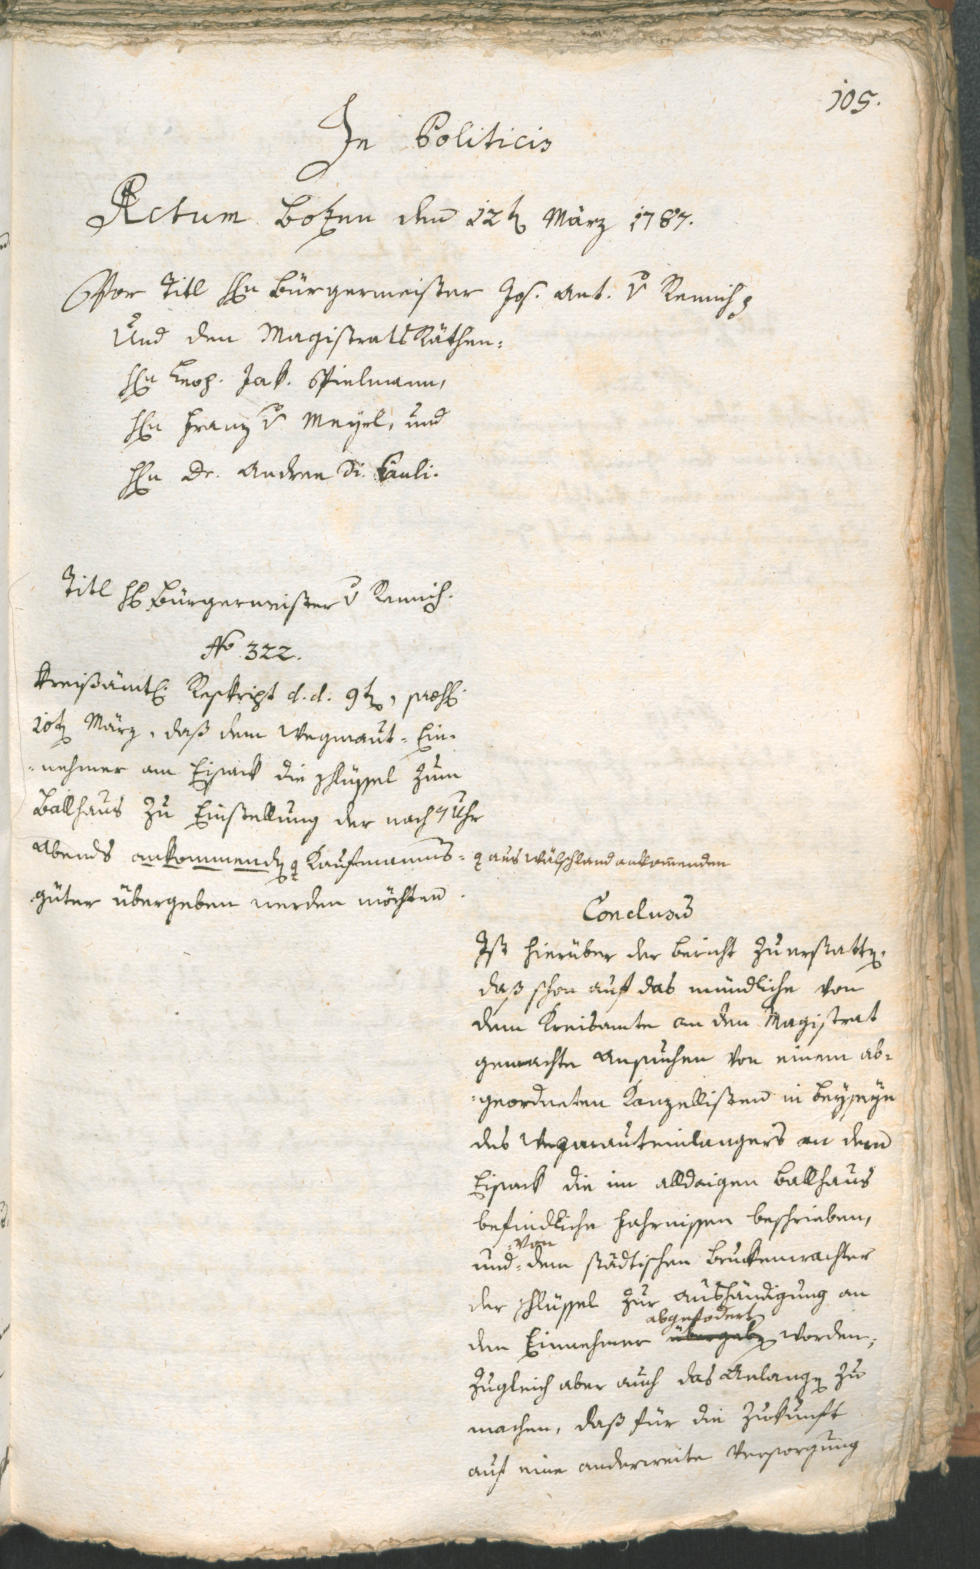 105.
In Politicis
Actum Botzen den 12t März 1787.
Vor Titl Hn Bürgermeister Jos. Ant. v Remich
Und den Magistrats Räthen:
Hn Leop. Jak. Spielmann,
Hn Franz v Meyrl, und
Hn Dr. Andree Di Pauli.
Titl H Bürgermeister v Remich.
No 322.
Kreißämtl. Reskript d. d. 9t, præs.
10t März, daß dem Wegmaut-Ein-
-nehmer am Eisack die Schlüssel zum
Ballhaus zu Einstellung der nach 7 Uhr
Abends ankommend Kaufmanns-
güter übergeben werden möchten.
aus Wälschland ankommenden
Conclusum
Ist hierüber der Bericht zu erstatten,
daß schon auf das mündliche von
dem Kreisamte an den Magistrat
gemachte Ansuchen von einem ab-
-geordneten Kanzellisten in Beyseyn
des Wegmauteinlangers an dem
Eisack die im alldaigen Ballhaus
befindliche Fahrnissen beschrieben,
von
und dem städtischen Bruckenwachter
der Schlüssel zur Aushändigung an
abgefodert
den Einnehmer übergeben worden;
zugleich aber auch das Anlangen zu
machen, daß für die Zukunft
auf eine anderweite Versorgung